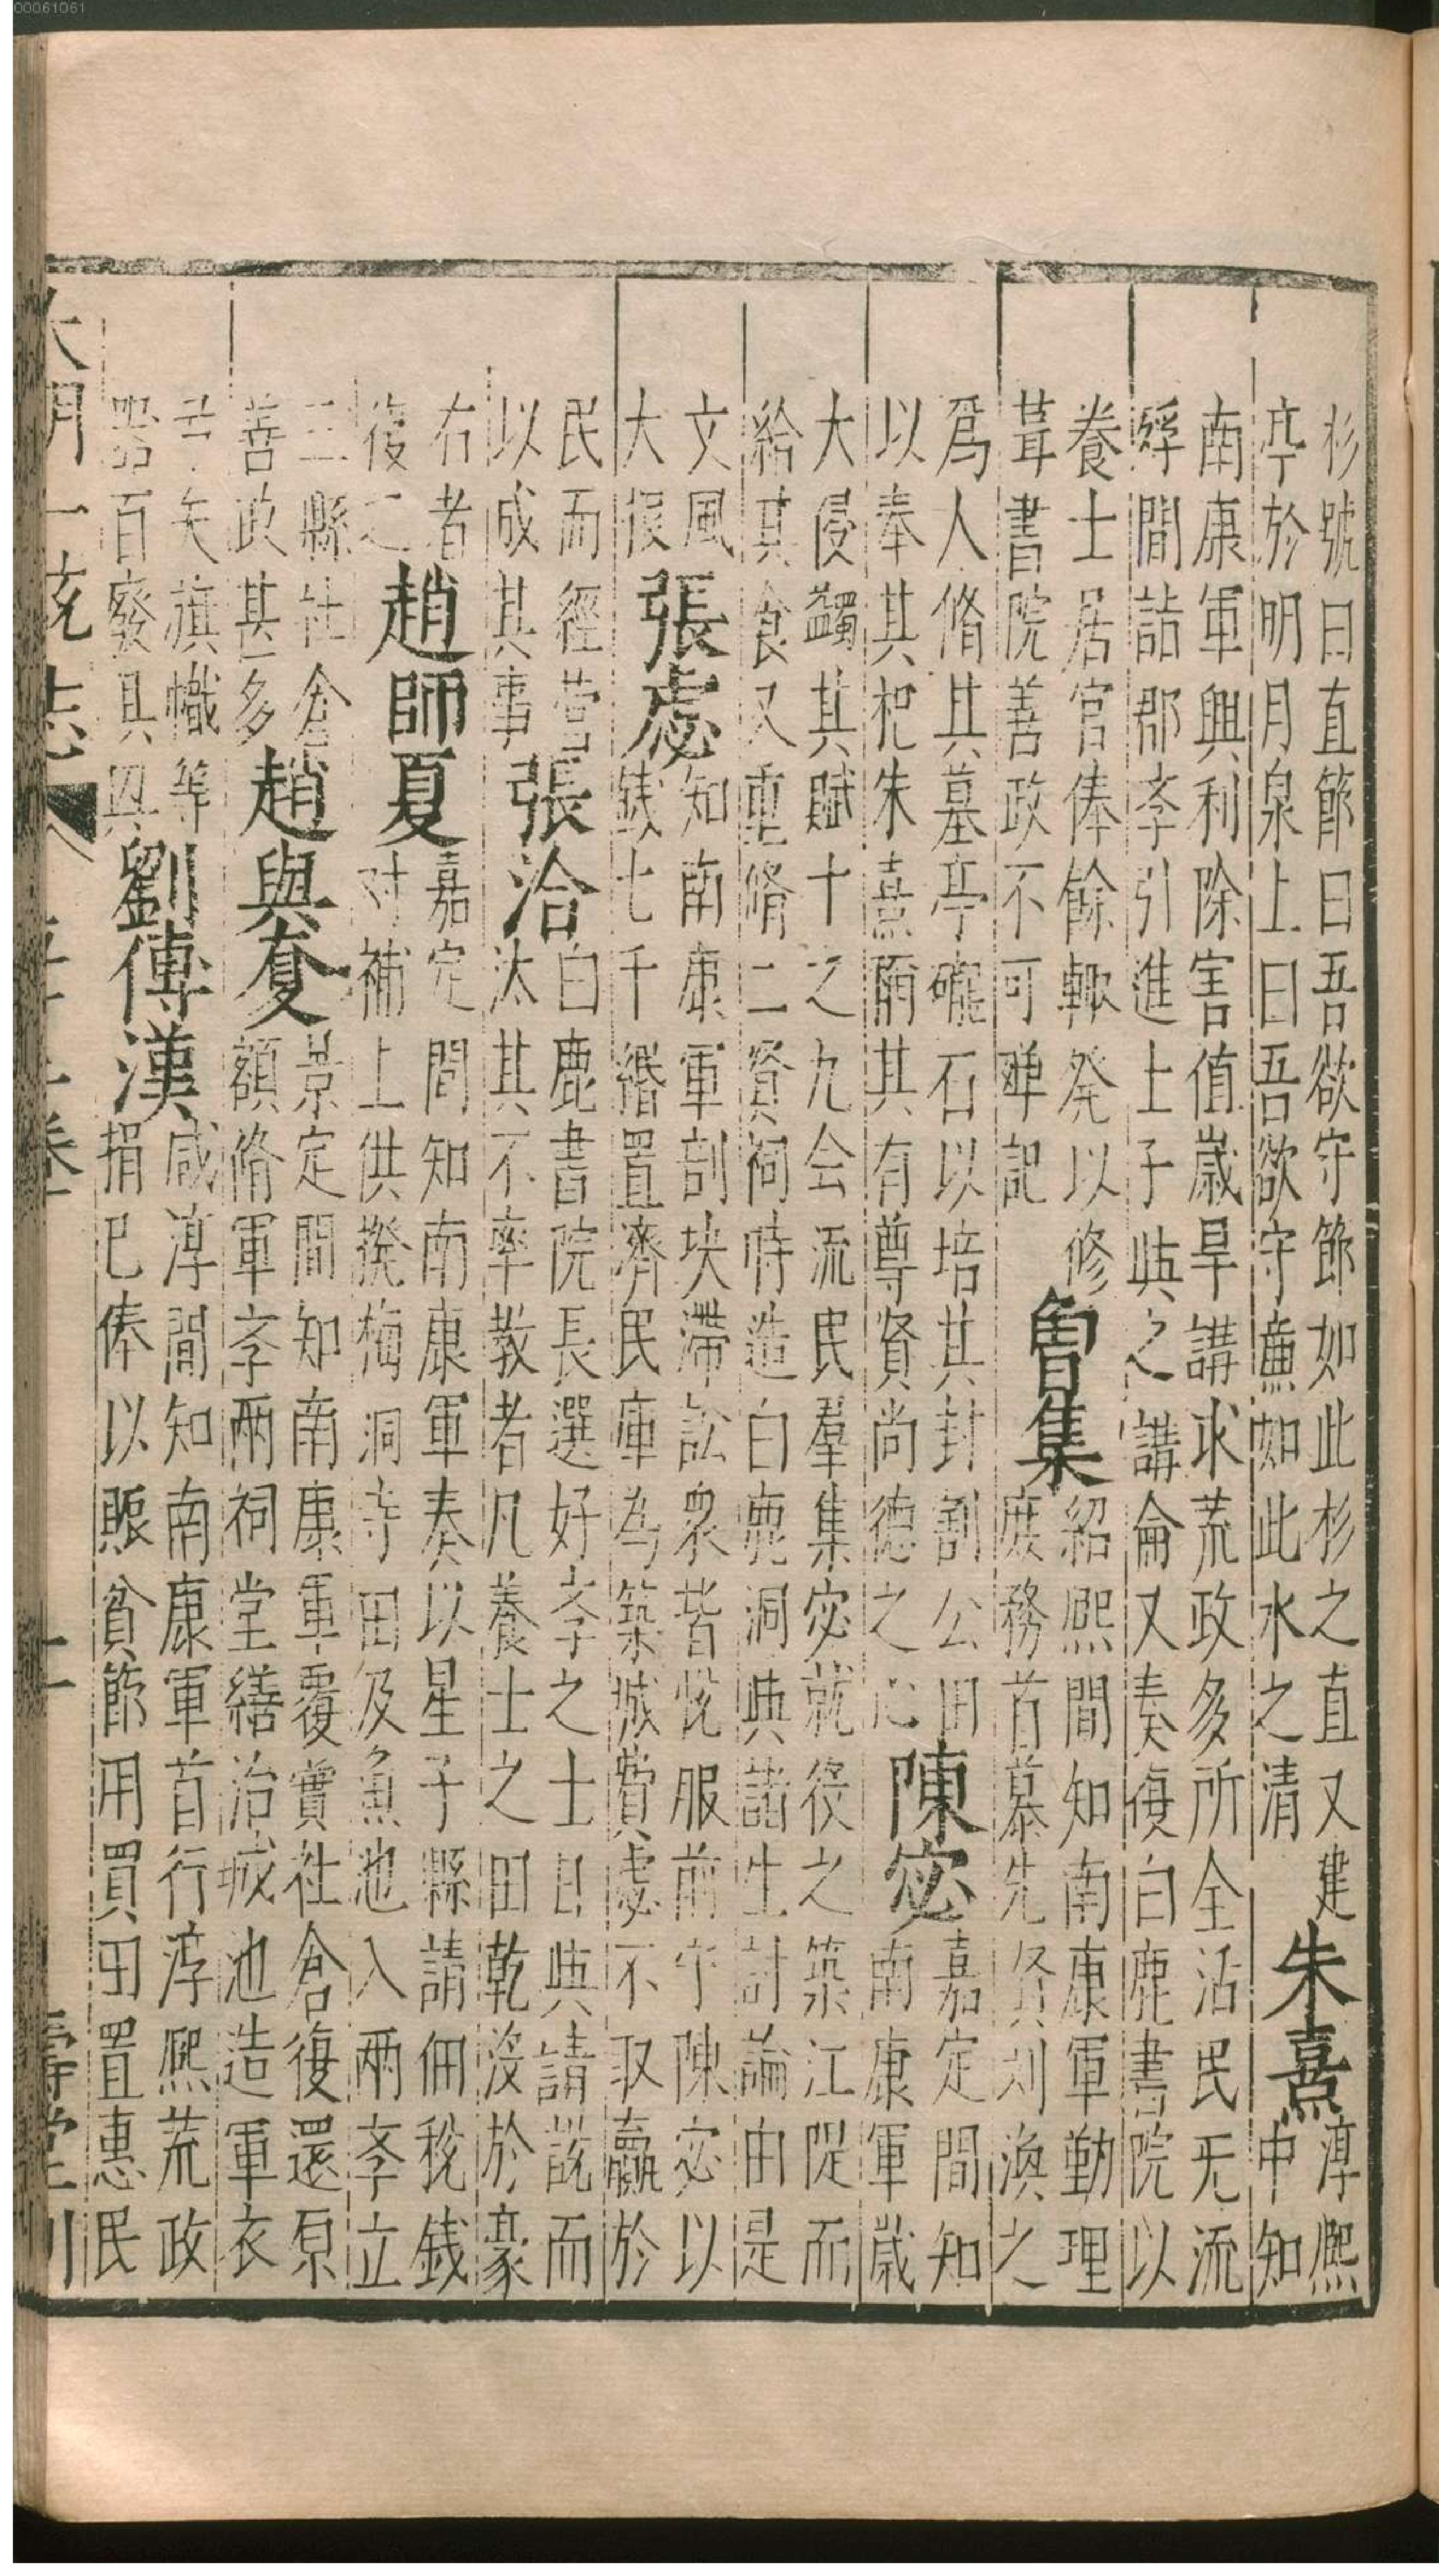 杉號曰直節曰吾欲守節如此杉之直又建
亭於明月泉上曰吾欲守㢘如此水之清
朱熹
淳熙
中知
南康軍興利除害值歲旱講求荒政多所全活民无流
殍間詣郡李引進士子與之講論又奏復白鹿書院以
養士居官俸餘輙發以修
葺書院善政不可殫記
曾集
紹熙間知南康軍勤理
庶務首慕先贤刘渙之
爲人脩其墓亭礲石以培其封割公田
以奉其祀朱熹稱其有尊賢尚德之心
陳宓
嘉定間知
南康軍歲
大侵蠲其賦十之九会流民羣集宓就役之築江隄而
給其食又重脩二賢祠時造白鹿洞與諸生討論由是
文風
大振
張虙
知南康軍剖决滯訟衆皆悅服前守陳宓以
錢七千緡置濟民庫為築城費虙不取贏於
民而經营
以成其事
張洽
白鹿書院長選好李之士日與請説而
汰其不率教者凡養士之田乾没於豪
右者
復之
趙師夏
嘉定間知南康軍奏以星子縣請佃稅錢
对補上供撥梅洞寺田及魚池入两李立
三縣社倉
善政甚多
趙與𡕩
景定間知南康軍覆實社倉復還原
額脩軍李兩祠堂繕治城池造軍衣
弓矢旗幟等
器百廢具興
劉傳漢
咸淳間知南康軍首行淳熙荒政
捐已俸以賑貧節用買田置惠民
大明一统志
卷
十一
壽堂刊